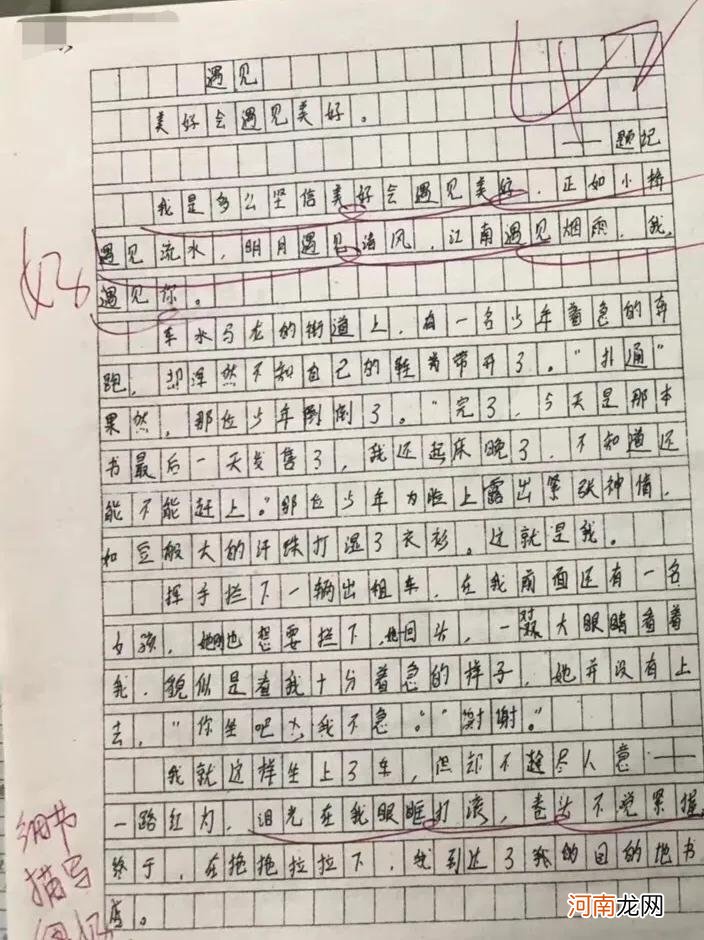 遇见
美好会遇见美好。
——题记
我是多么坚信美好会遇见美好，正如小桥
遇见流水，明月遇见海风，江南遇见烟雨，我
遇见你。
好
车水马龙的街道上，有一名少年着急的奔
跑，却浑然不知自己的鞋带开了。“扑通”
果然，那位少年倒了。“完了，今天是那本
书最后一天发售了，我还起床晚了，不知道还
能不能赶上。”那位少年脸上露出紧张神情，
如豆般大的汗珠打湿了衣衫。这就是我。
挥手拦下一辆出租车，在我前面还有一名
女孩，她刚也想要拦下，她回头，一双大眼睛看着
我，貌似是看我十分着急的样子，她并没有上
去，“你坐吧，我不急。”“谢谢。”
我就这样坐上了车，但却不尽人意——
一路红灯，泪光在我眼眶打滚，拳头不觉紧握
终于，在拖拖拉拉下，我到达了我的目的地书
店。
细节
描写
河南龙网